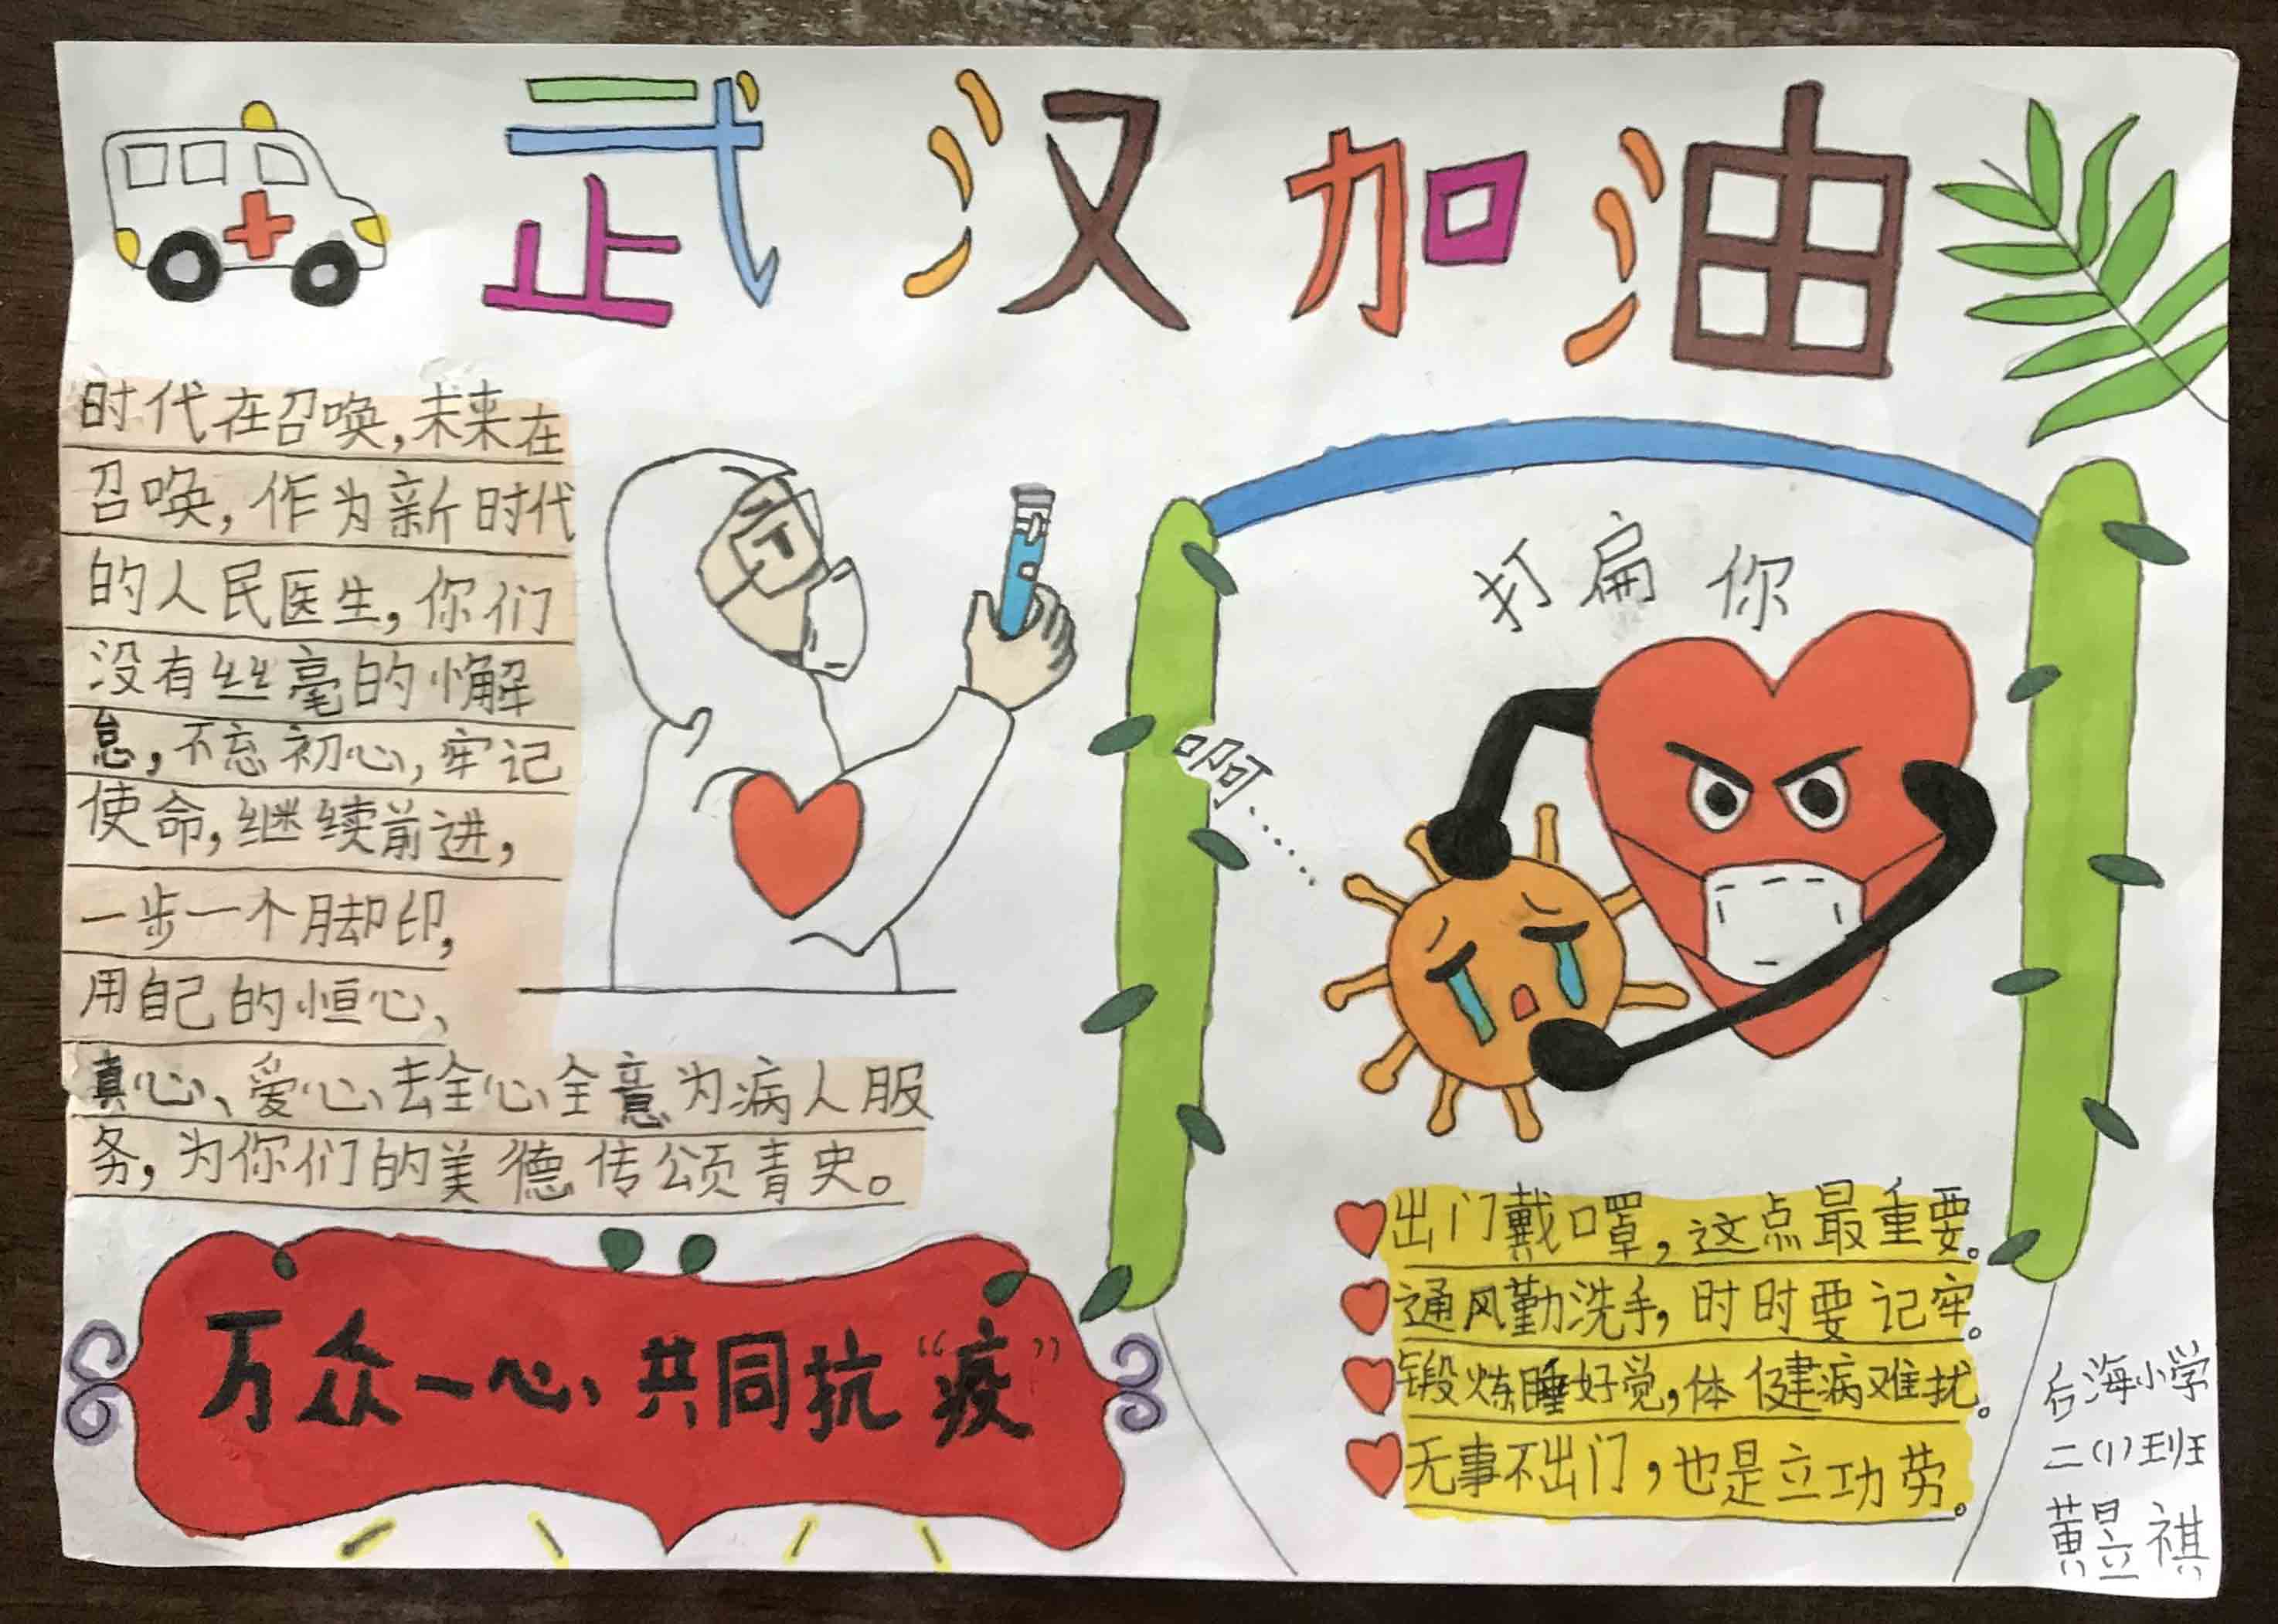 武汉加油
时代在召唤,未来在
召唤,作为新时代
的人民医生,你们
没有丝毫的懈
怠,不忘初心,牢记
使命,继续前进,
一步一个脚印,
用自己的恒心、
真心、爱心去全心全意为病人服
务,为你们的美德传颂青史。
万众一心、共同抗“疫”
打扁你
啊……
出门戴口罩,这点最重要。
通风勤洗手,时时要记牢。
锻炼睡好觉,体健病难扰。
无事不出门,也是立功劳。
后海小学
二(1)班
黄昱祺